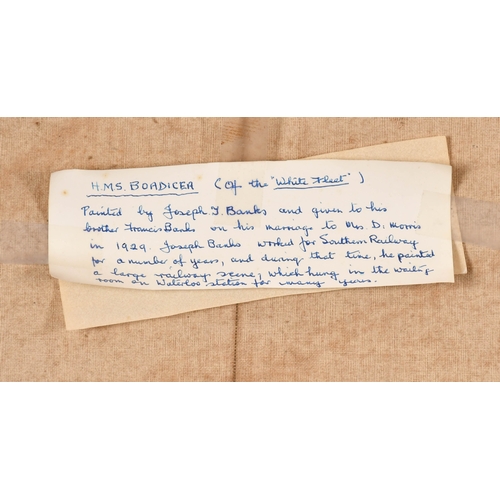 H.M.S. BOADICEA (Of the "White Fleet")
Painted by Joseph T. Banks and given to his
brother Francis Banks on his marriage to Ms. D. Morris
in 1929. Joseph Banks worked for Southern Railway
for a number of years, and during that time, he painted
a large railway scene, which hung in the waiting
room on Waterloo station for many years.